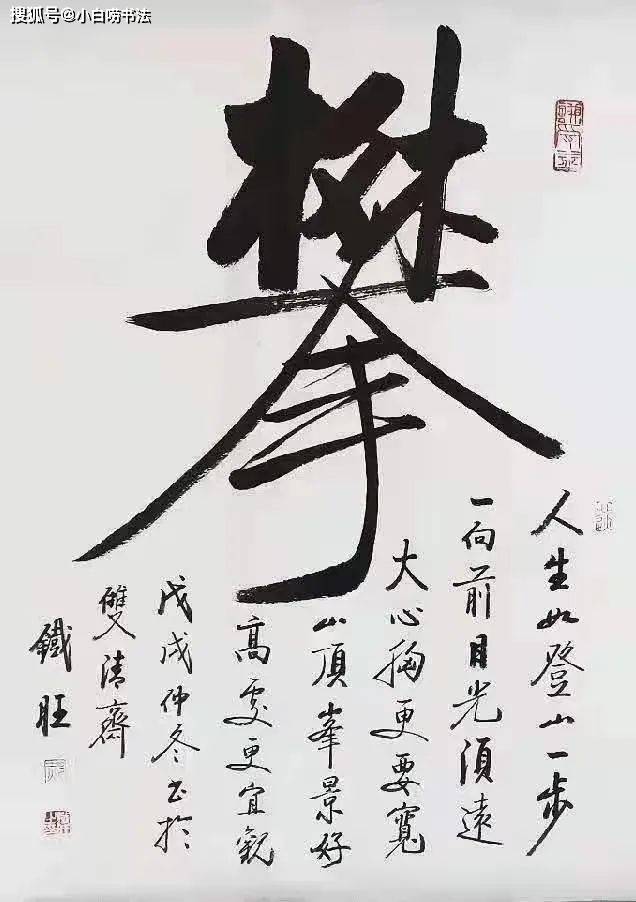 搜狐号@小白唠书法
攀
人生如登山一步
一向前目光須遠
大心胸更要寬
山頂峯景好
高處更宜觀
戊戌仲冬书於
雙清齋
鐵旺